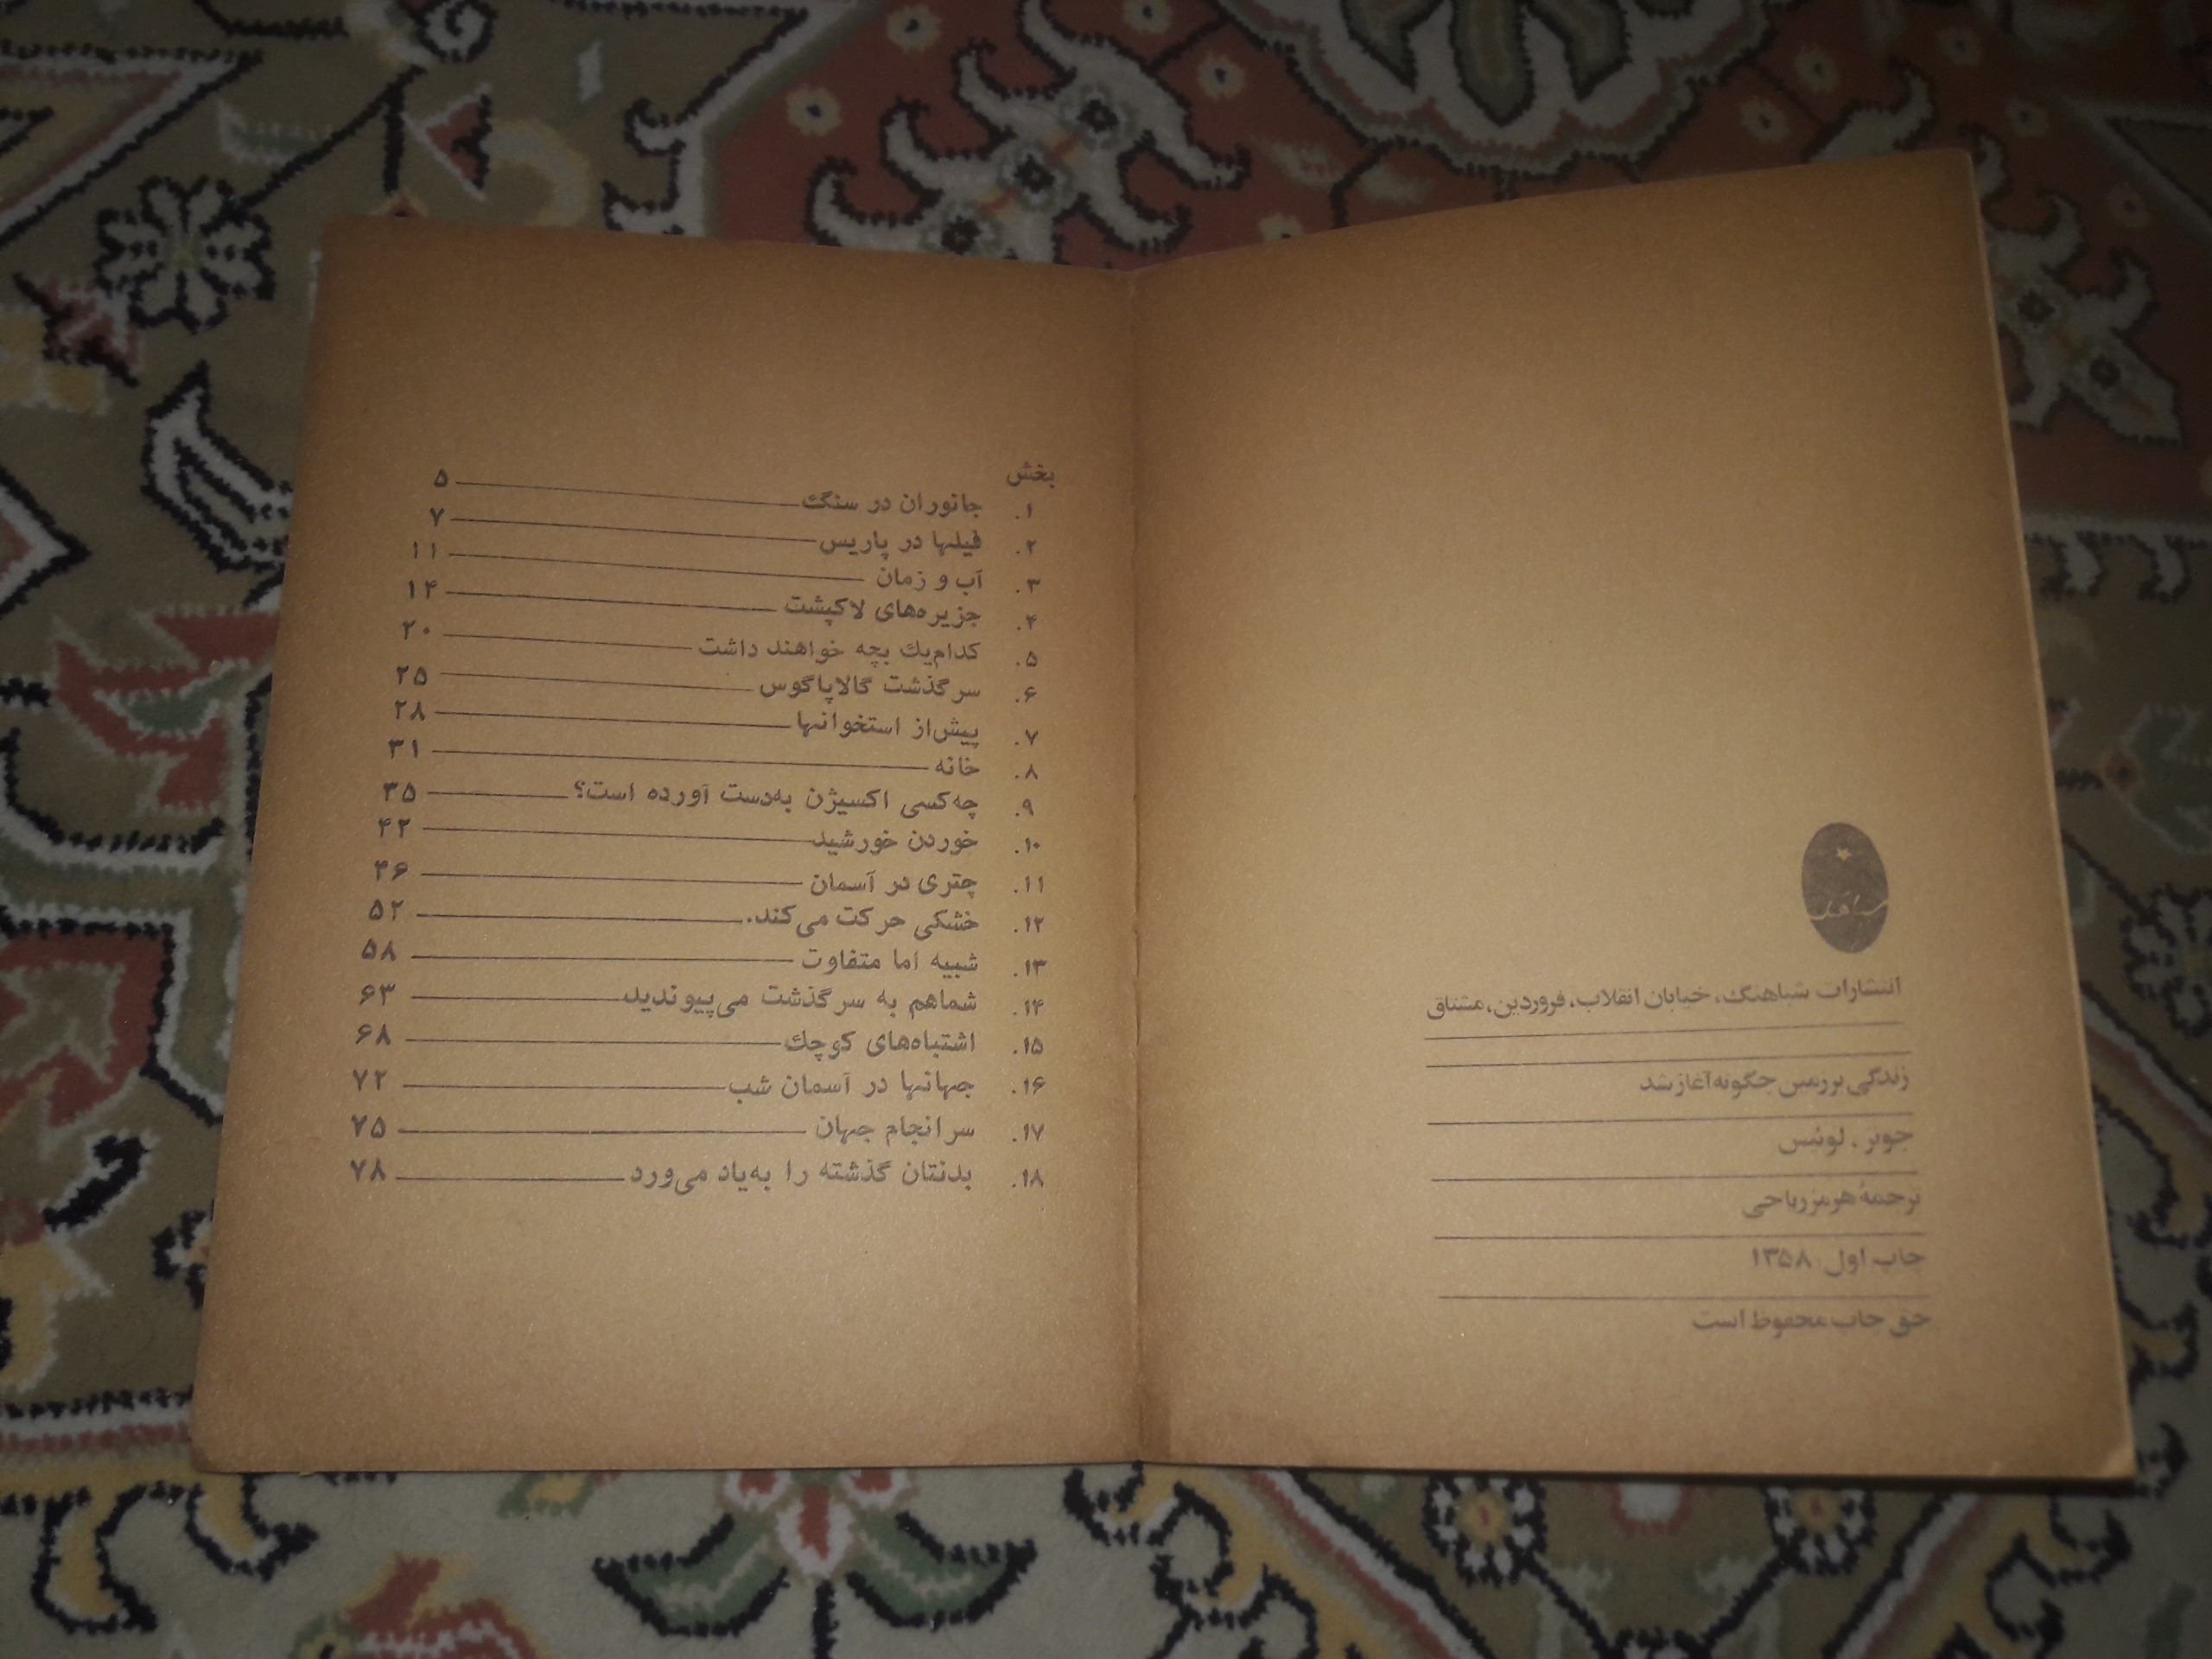 شباهنگ
انتشارات شباهنگ، خیابان انقلاب، فروردین، مشتاق
زندگی بر زمین چگونه آغاز شد
جونز، لوئیس
ترجمهٔ هرمز ریاحی
چاپ اول ۱۳۵۸
حق چاپ محفوظ است
بخش
۱. جانوران در سنگ ۵
۲. فیلها در پاریس ۷
۳. آب و زمان ۱۱
۴. جزیره‌های لاکپشت ۱۴
۵. کدام‌یك بچه خواهند داشت ۲۰
۶. سرگذشت گالاپاگوس ۲۵
۷. پیش‌از استخوانها ۲۸
۸. خانه ۳۱
۹. چه‌کسی اکسیژن به‌دست آورده است؟ ۳۵
۱۰. خوردن خورشید ۴۲
۱۱. چتری در آسمان ۴۶
۱۲. خشکی حرکت می‌کند. ۵۲
۱۳. شبیه اما متفاوت ۵۸
۱۴. شماهم به سرگذشت می‌پیوندید ۶۳
۱۵. اشتباه‌های کوچك ۶۸
۱۶. جهانها در آسمان شب ۷۲
۱۷. سرانجام جهان ۷۵
۱۸. بدنتان گذشته را به‌یاد می‌ورد ۷۸